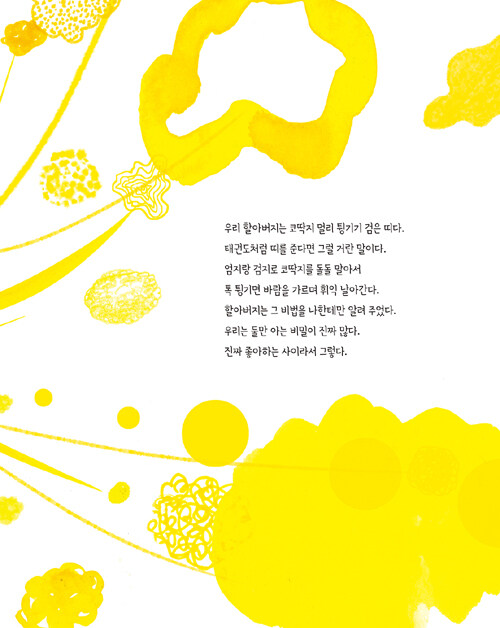 우리 할아버지는 코딱지 멀리 튕기기 검은 띠다.
태권도처럼 띠를 준다면 그럴 거란 말이다.
엄지랑 검지로 코딱지를 돌돌 말아서
톡 튕기면 바람을 가르며 휘익 날아간다.
할아버지는 그 비법을 나한테만 알려 주었다.
우리는 둘만 아는 비밀이 진짜 많다.
진짜 좋아하는 사이라서 그렇다.